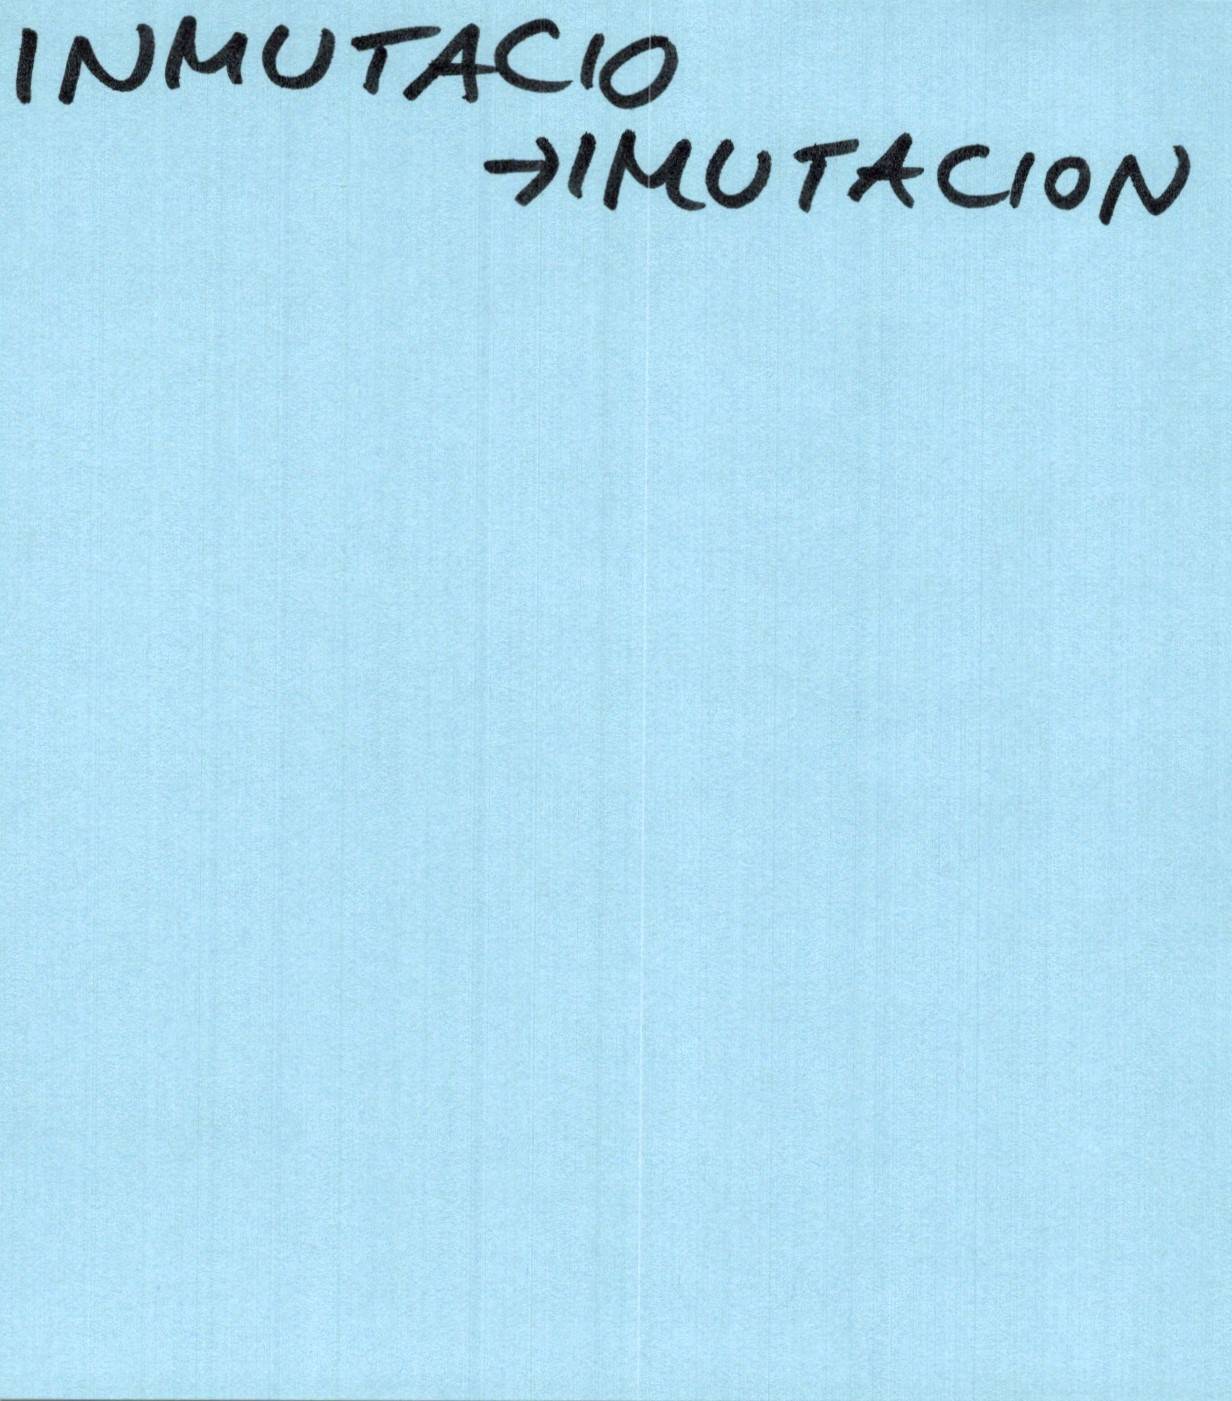 INMUTACIO
→IMUTACION